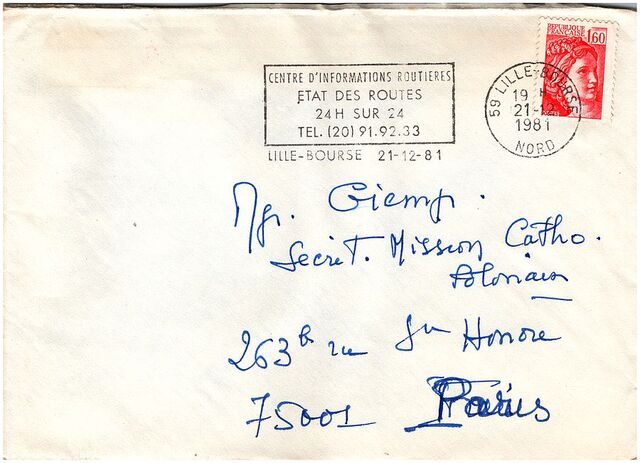 REPUBLIQUE
FRANCAISE 1,60
CENTRE D'INFORMATIONS ROUTIERES
ETAT DES ROUTES
24H SUR 24
TEL. (20) 91.92.33
LILLE-BOURSE 21-12-81
59 LILLE-BOURSE
19 H
21-12
1981
NORD
Mgr. Giemp.
Secret. Mission Catho.
263 b rue St Honore
75001 Paris